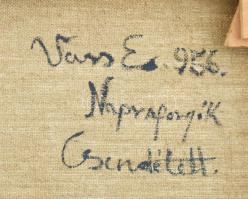 Vass E. 956.
Napraforgók
Csendélett.